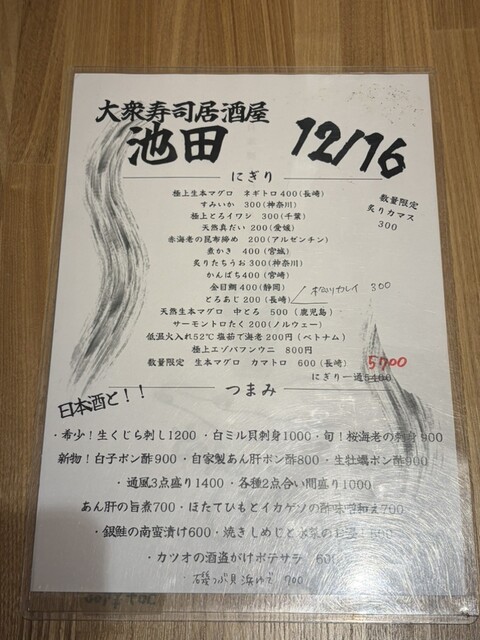 大衆寿司居酒屋
池田
12/16
にぎり
極上生本マグロ ネギトロ400(長崎)
すみいか 300(神奈川)
極上とろイワシ 300(千葉)
天然真だい 200(愛媛)
赤海老の昆布締め 200(アルゼンチン)
煮かき 400(宮城)
炙りたちうお300(神奈川)
かんぱち400(宮崎)
金目鯛400(静岡)
とろあじ200(長崎)
カレイ 300
天然生本マグロ 中とろ 500 (鹿児島)
サーモントロたく200(ノルウェー)
低温火入れ52℃ 塩茹で海老 200円(ベトナム)
極上エゾバフンウニ 800円
数量限定 生本マグロ カマトロ 600(長崎)
5700
にぎり一通5400
数量限定
炙りカマス
300
つまみ
日本酒と!!
・希少!生くじら刺し1200 ・白ミル貝刺身1000・旬!桜海老の刺身900
新物!白子ポン酢900・自家製あん肝ポン酢800・生牡蠣ポン酢900
・通風3点盛り1400・各種2点合い間盛り1000
あん肝の旨煮700・ほたてひもとイカゲソの酢味噌和え700
・銀鮭の南蛮漬け600・焼きしめじと水菜のお浸し500
・カツオの酒盗がけポテサラ 600
・磯つぶ貝浜ゆで 700